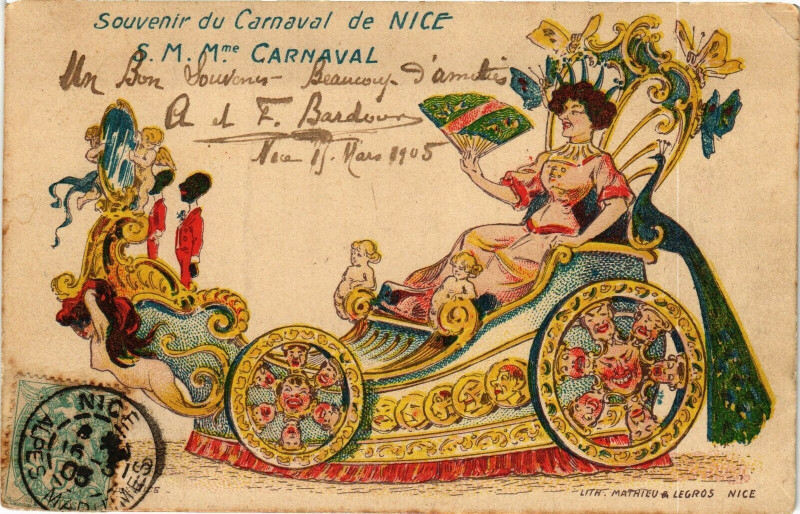 Souvenir du Carnaval de NICE
S. M. Mme CARNAVAL
Un Bon Souvenir Beaucoup d'amitiés
A et F. Bardoux
Nice 15 Mars 1905
NICE
ALPES MARITIMES
LITH. MATHIEU & LEGROS NICE